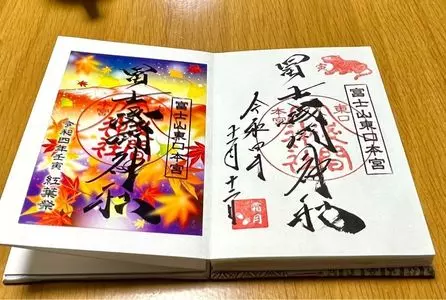 寅
富士山東口本宮
冨士浅間神社
東口
本宮
令和四年
十一月十二日
霜月
富士山東口本宮
冨士浅間神社
令和四年壬寅 紅葉祭